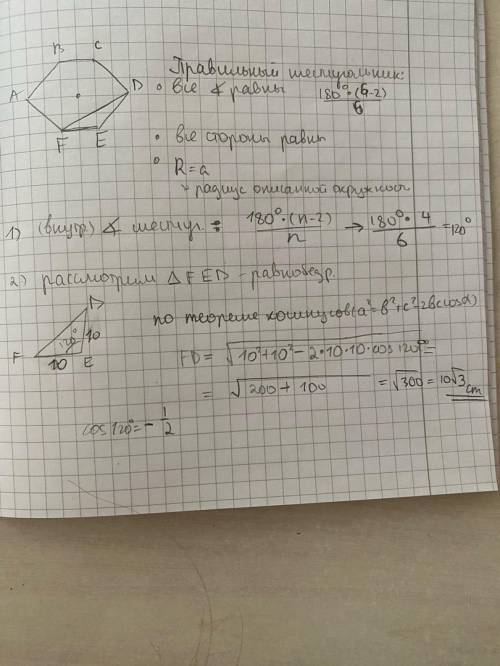 B C
Правильный шестиугольник:
A D
• все ∡ равны 180°·(6-2)/6
F E
• все стороны равны
• R = a
радиус описанной окружност
1) (внутр) ∡ шестиуг. = 180°·(n-2)/n → 180°·4/6 = 120°
2) рассмотрим △FED - равнобедр.
D
по теореме косинусов (a²=b²+c²-2bccosα)
120° 10
F 10 E
FD = √10²+10²-2·10·10·cos120° =
= √200+100 = √300 = 10√3 cm
cos120° = -1/2